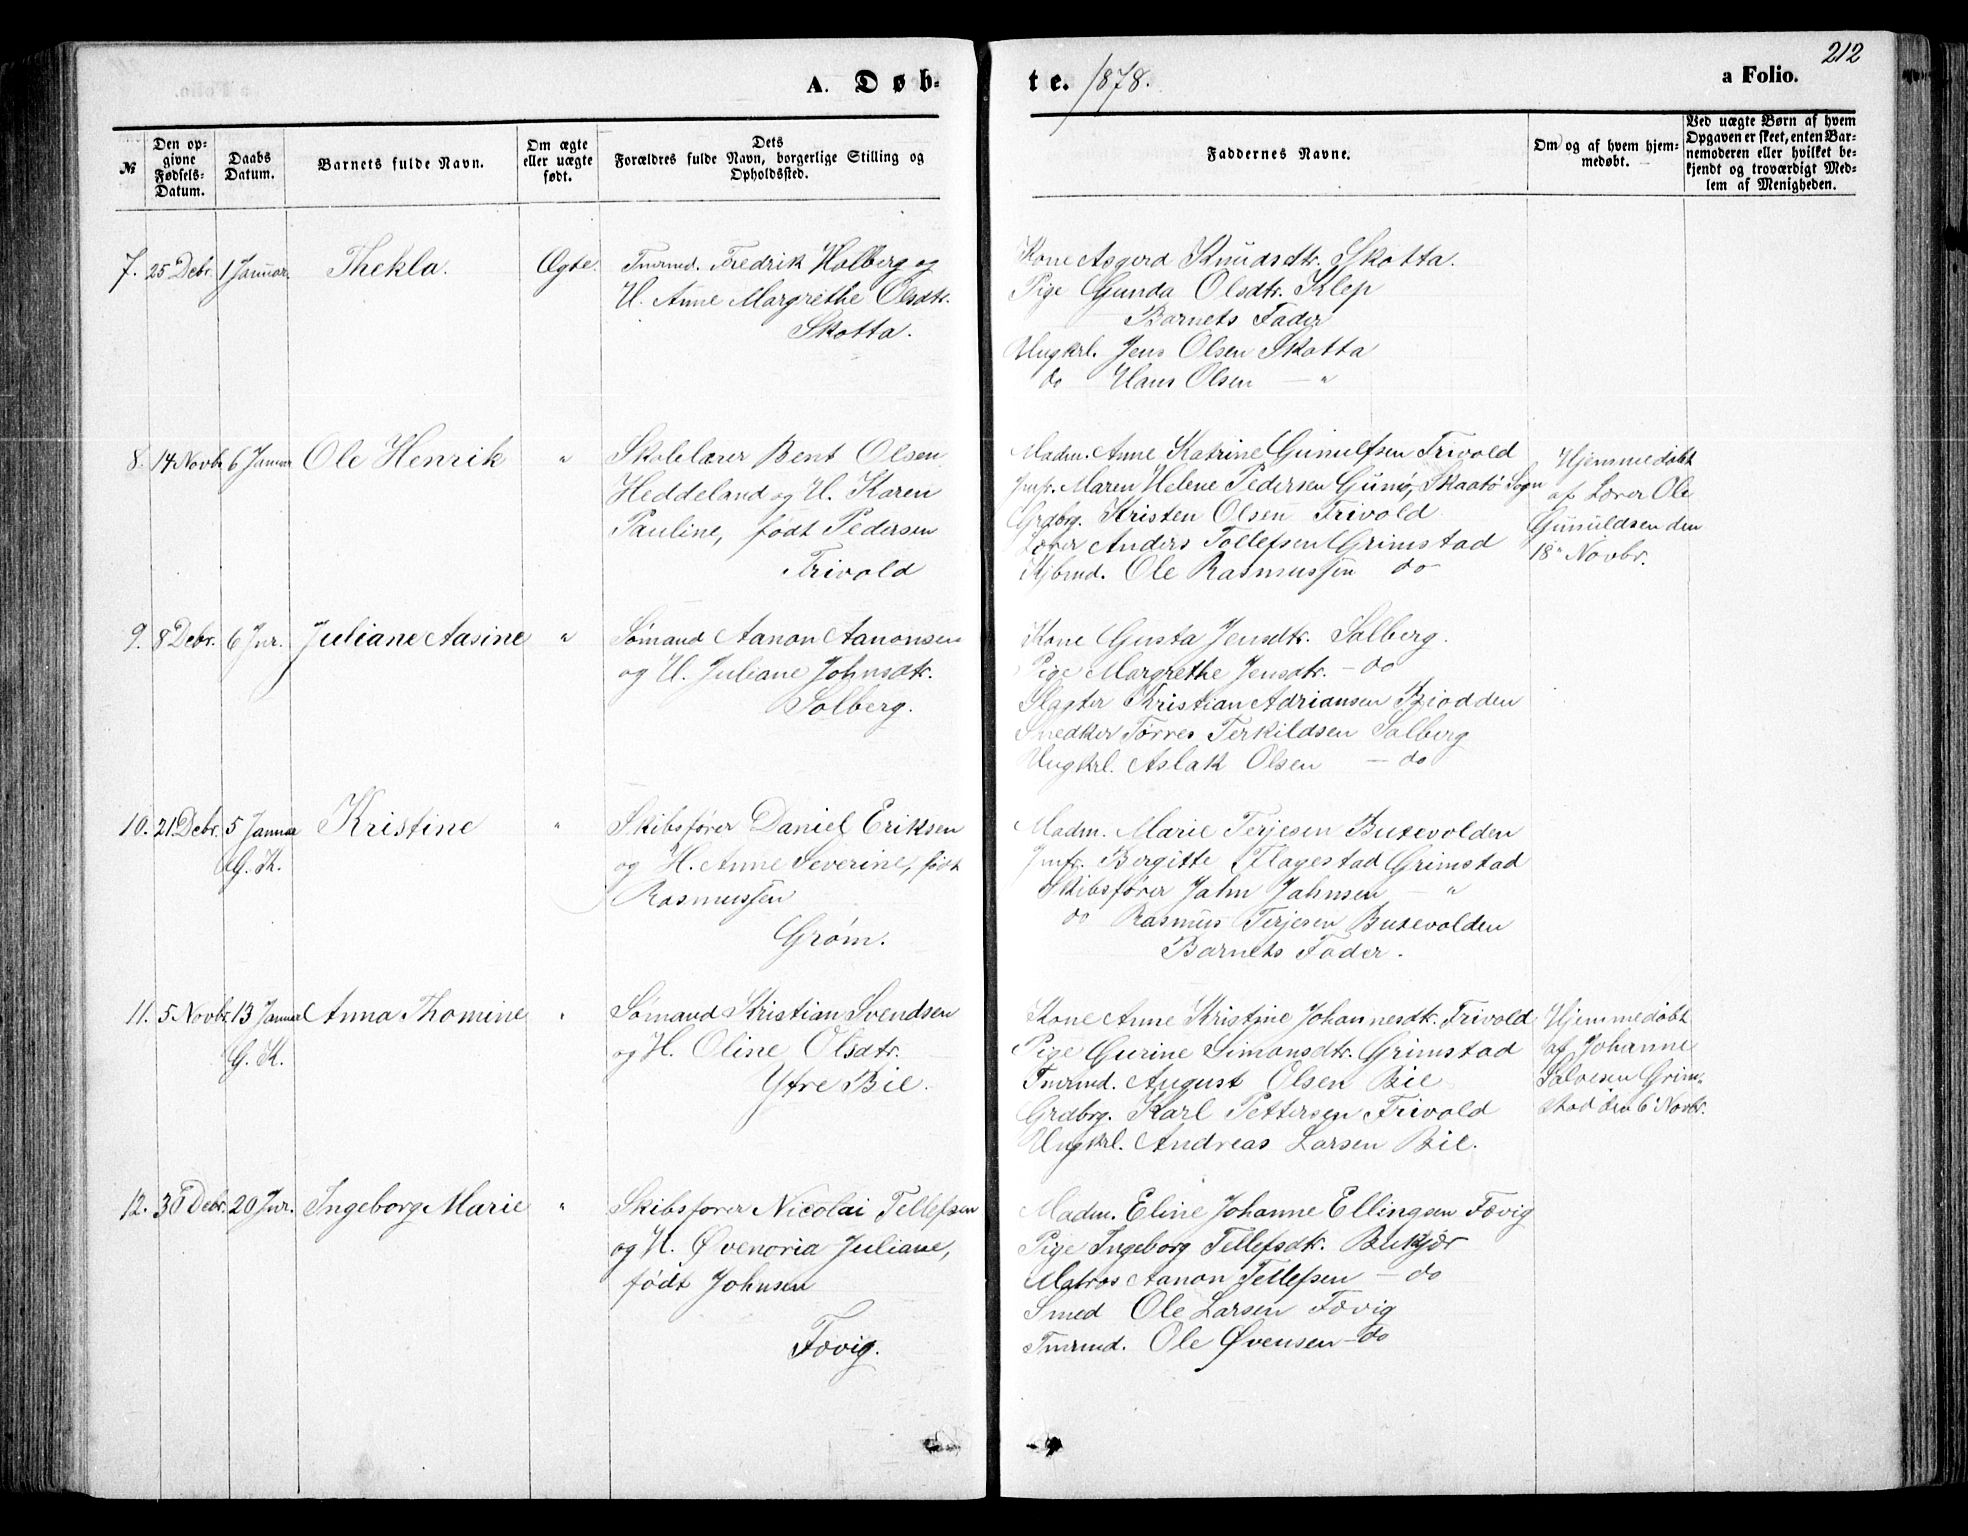 A. Døb-
te. 1878.
a Folio. 212
№
Den op-
givne
Fødsels-
Datum.
Daabs
Datum.
Barnets fulde Navn.
Om ægte
eller uægte
født.
Dets
Forældres fulde Navn, borgerlige Stilling og
Opholdssted.
Faddernes Navne.
Om og af hvem hjem-
medøbt.
Ved uægte Børn af hvem
Opgaven er skeet, enten Bar-
nemoderen eller hvilket be-
kjendt og troværdigt Med-
lem af Menigheden.
7. 25 Debr. 1 Januar. Thekla. Ægte. Tmrmd. Fredrik Holberg og
H. Anne Margrethe Olsdtr.
Skotta.
Kone Asgerd Knudsdtr. Skotta.
Pige Gunda Olsdtr. Klep
Barnets Fader
Ungkrl. Jens Olsen Skotta
do Hans Olsen — "
8. 14 Novbr 6 Januar Ole Henrik " Skolelærer Bent Olsen
Heddeland og H. Karen
Pauline, født Pedersen
Frivold
Madm. Anne Katrine Gunulfsen Frivold
Jmfr. Maren Helene Pedersen Gumø, Skaatø Sogn
Grdbrg. Kristen Olsen Frivold
Lærer Anders Tollefsen Grimstad
Kjbmd. Ole Rasmussen do
Hjemmedøbt
af Lærer Ole
Gunuldsen den
18" Novbr.
9. 8 Debr. 6 Jnr. Juliane Aasine " Sømand Aanon Aanonsen
og H. Juliane Johnsdtr.
Solberg.
Kone Gusta Jensdtr. Solberg.
Pige Margrethe Jensdtr. — do
Slagter Kristian Adriansen Bjodden
Snedker Tørres Terkildsen Solberg
Ungkrl. Aslak Olsen — do
10. 21. Debr. 5 Januar Kristine " Skibsfører Daniel Eriksen
G. K.
og H. Anne Severine, født
Rasmussen
Grøm.
Madm. Marie Terjesen Buxevolden
Jmfr. Bergitte Flagestad Grimstad
Skibsfører Jahn Jahnsen — "
do Rasmus Terjesen Buxevolden
Barnets Fader.
11. 5 Novbr. 13 Januar Anna Thomine " Sømand Kristian Svendsen
G. K.
og H. Oline Olsdtr.
Ytre Bie.
Kone Anne Kristine Johannesdtr. Frivold
Pige Gurine Simonsdtr. Grimstad
Tmrmd. August Olsen Bie
Grdbrg. Karl Pettersen Frivold
Ungkrl. Andreas Larsen Bie.
Hjemmedøbt
af Johanne
Salvesen Grim-
stad den 6" Novbr.
12. 30 Debr. 20 Jnr. Ingeborg Marie " Skibsfører Nicolai Tellefsen
og H. Øvenoria Juliane,
født Johnsen
Fævig.
Madm. Eline Johanne Ellingsen Fævig
Pige Ingeborg Tellefsdtr. Bukjær
Matros Aanon Tellefsen — do
Smed Ole Larsen Fævig
Tmrmd. Ole Øvensen — do